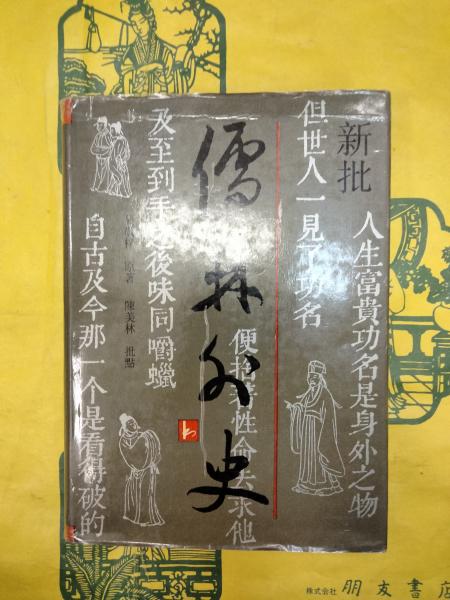 新批
人生富貴功名是身外之物
但世人一見了功名
便捨著性命去求他
儒林外史
及至到手之後味同嚼蠟
吳敬梓 原著 陳美林 批點
自古及今那一个是看得破的
株式会社 朋友書店